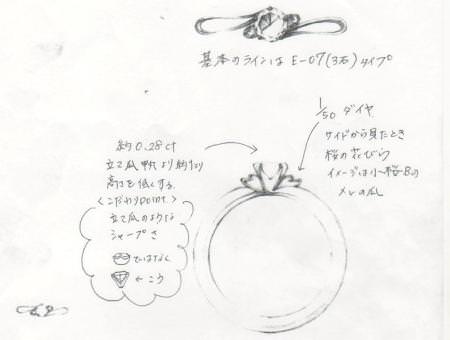 基本のラインは E-07(3石)タイプ
1/50 ダイヤ
サイドから見たとき
桜の花びら
イメージは小桜-Bの
メレの爪
約0.28ct
立て爪
高さを低くする。
<こだわりpoint>
立て爪のような
シャープさ
ではなく
←こう